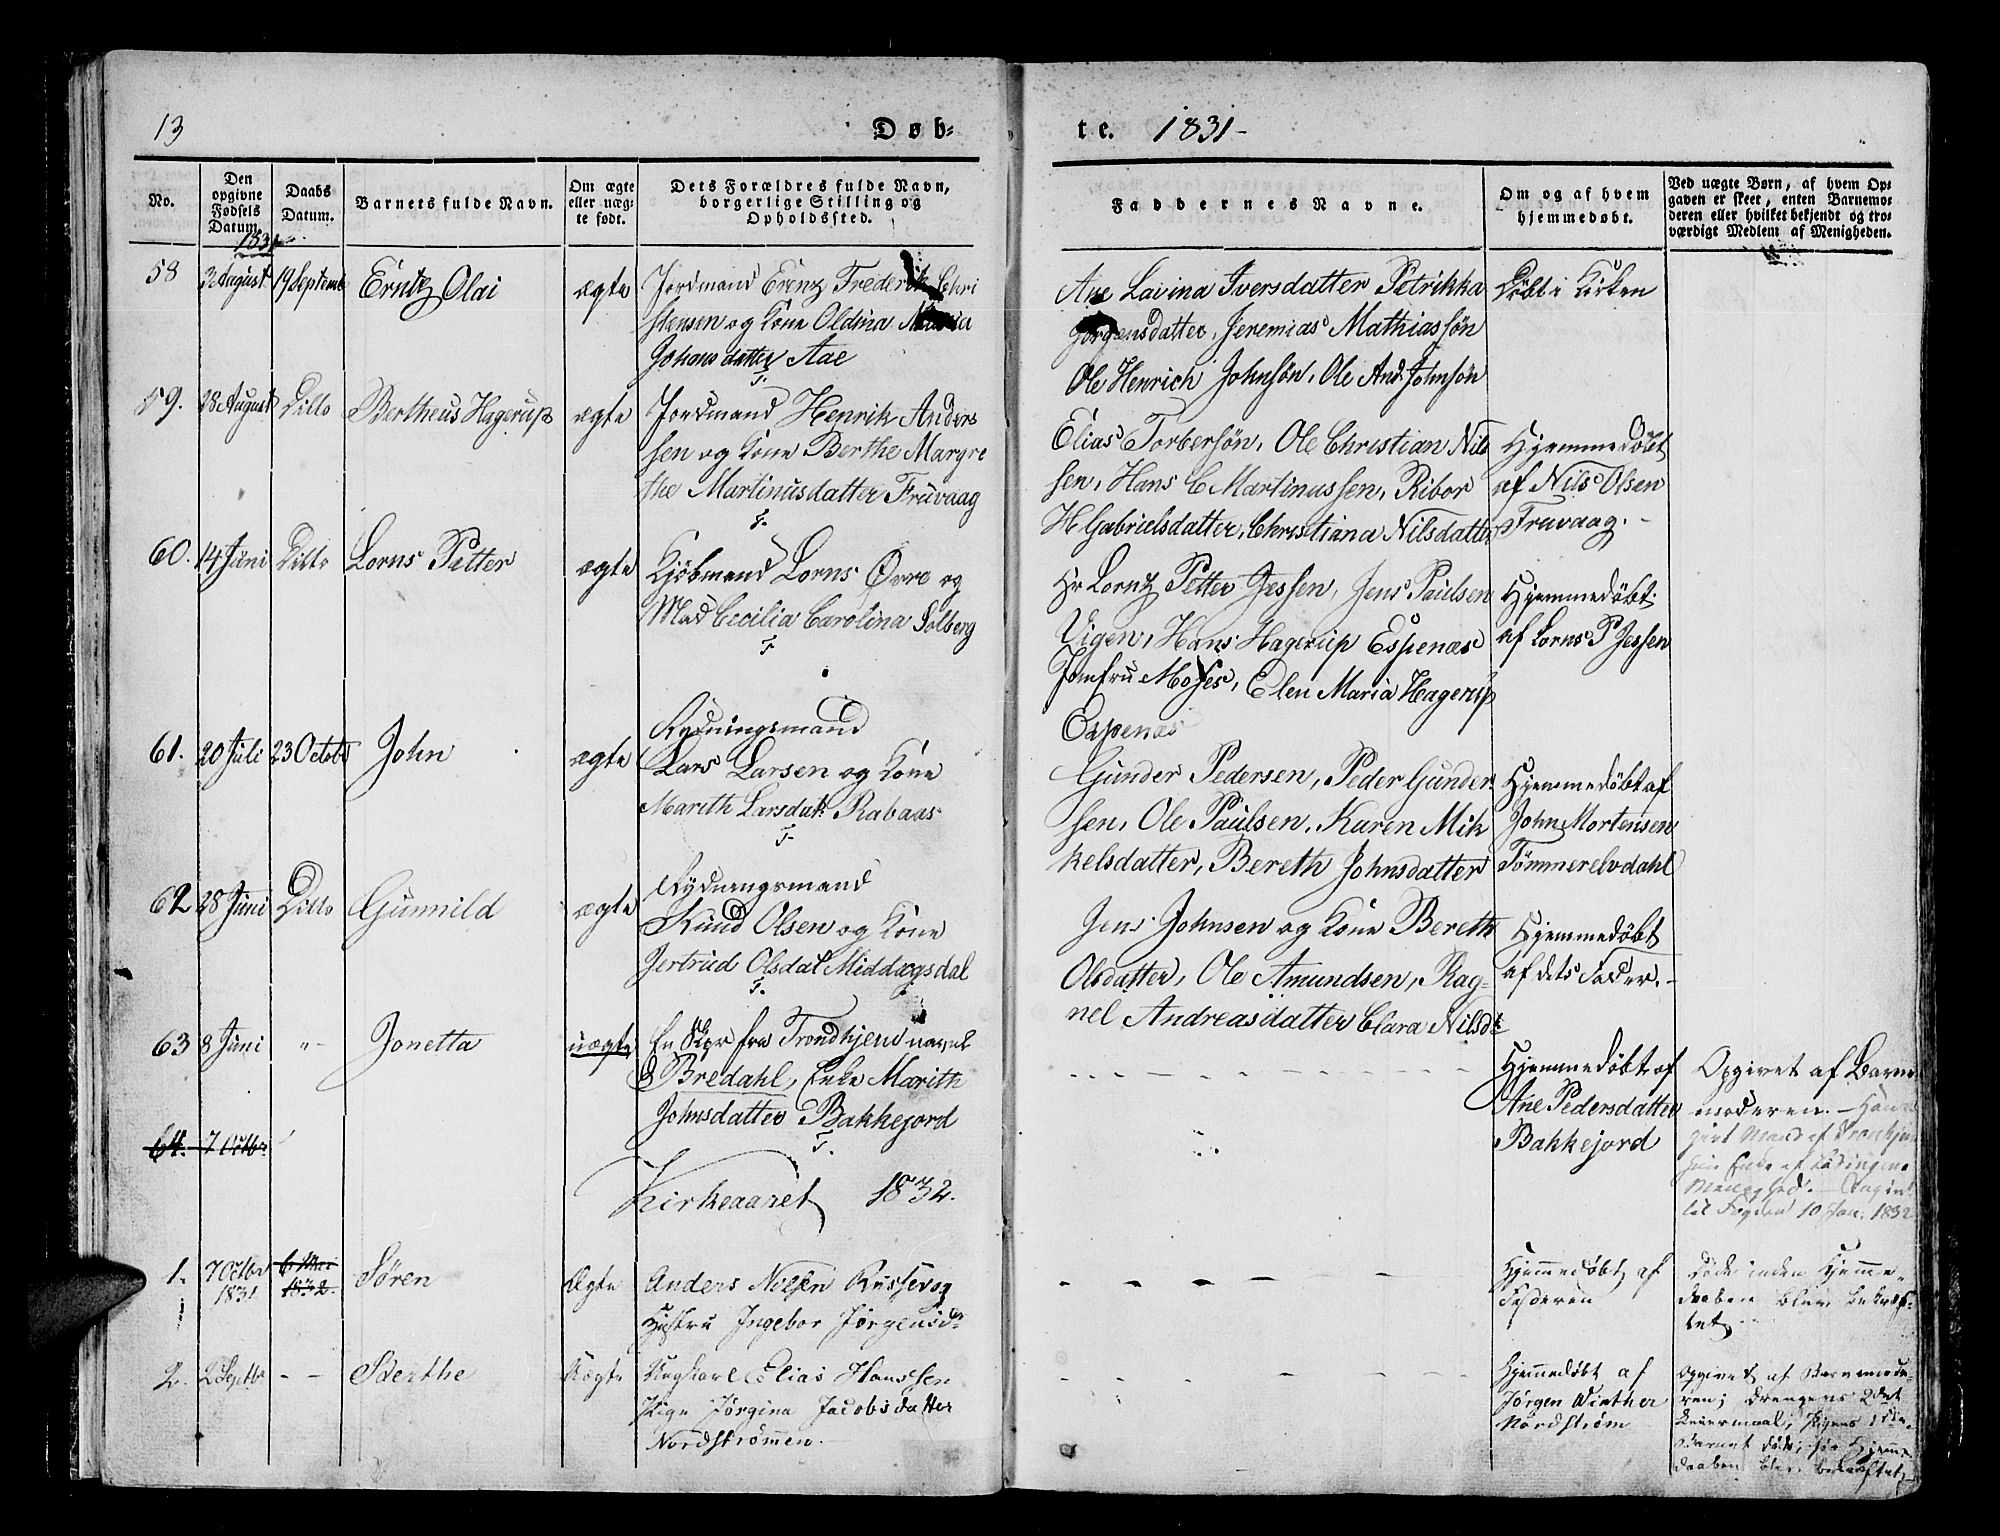 13
Døb-
te. 1831-
No.
Den opgivne Fødsels Datum.
Daabs Datum.
Barnets fulde Navn.
Om ægte eller uægte født.
Dets Forældres fulde Navn, borgerlige Stilling og Opholdssted.
Faddernes Navne.
Om og af hvem hjemmedøbt.
Ved uægte Børn, af hvem Opgaven er skeet, enten Barnemoderen eller hvilket bekjendt og troværdigt Medlem af Menigheden.
1831
58 3 August 19 Septemb Erntz Olai ægte Jordmand Erenz Frederik Chri
stensen og Kone Oldina Maria
Johansdatter Aae
T.
Ane Lavina Iversdatter Petrikka
Jørgensdatter, Jeremias Mathiassøn
Ole Henrich Johnsøn, Ole And. Johnsøn
Døbt i Kirken
59. 28 August Ditto Bertheus Hagerup ægte Jordmand Henrik Anders
sen og Kone Berthe Margre
the Martinusdatter Fruvaag
T.
Elias Torbersøn, Ole Christian Nils
sen, Hans C Martinussen, Ribor
H Gabrielsdatter, Christiana Nilsdatter
Hjemmedøbt
af Nils Olsen
Fruvaag.-
60. 14 Juni Ditto Lorns Petter ægte Kjøbmand Lorns Øvre og
Mad Cecilia Carolina Solberg
T
Hr Lorntz Petter Jessen, Jens Paulsen
Vigen, Hans Hagerup Espenæs
Jomfru Moses, Elen Maria Hagerup
Espenæs
Hjemmedøbt
af Lorns P Jessen
61. 20 Juli 23 Octobr John ægte Rydningsmand
Lars Larsen og Kone
Marith Larsdatr Rabaas
T-
Gunder Pedersen, Peder Gunder
sen, Ole Paulsen, Karen Mik
kelsdatter, Bereth Johnsdatter
Hjemmedøbt af
John Mortensen
Tømmerelvdahl
62 28 Juni Ditto Gunnild ægte Rydningsmand
Knud Olsen og Kone
Jertrud Olsdat Middagsdal
T.
Jens Johnsen og Kone Bereth
Olsdatter, Ole Amundsen, Rag-
nel Andreasdatter Clara Nilsdt
Hjemmedøbt
af dets Fader.-
63 8 Juni -"- Jonetta uægte En Skpr fra Trondhjem navnl
Bredahl, Enke Marith
Johnsdatter Bakkejord
T.
Hjemmedøbt af
Ane Pedersdatter
Bakkejord
Opgivet af Barne
moderen.-
givt Mand af Tronhjem
hun Enke af Lødingens
Menighed.- Angivt
til Fogden 10 Jan. 1832
64. 7 Octbr
Kirkeaaret 1832.
1. 7 Octbr 1831 6 Mai 1832. Søren Ægte Anders Nilsen Russevog
Hustru Ingebor Jørgensdr
Hjemmedøbt af
Faderen
Døde inden Hjemme-
daaben blev bekræf-
tet.
2. 2 Septbr - - Berthe Uægte Ungkarl Elias Hanssen
Pige Jørgina Jacobsdatter
Nordstrømmen.-
Hjemmedøbt af
Jørgen Winther
Nordstrøm
Opgivet af Barnemode-
ren; Drengens 2det
Leiermaal, Pigens 1ste.
Barnet døde, før Hjemme
daaben blev bekræftet.